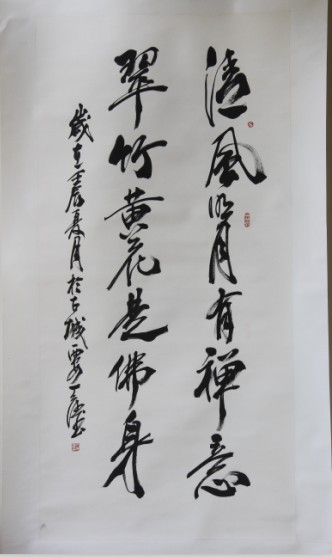 清风明月有禅意
翠竹黄花是佛身
岁在壬辰夏月於古城西安